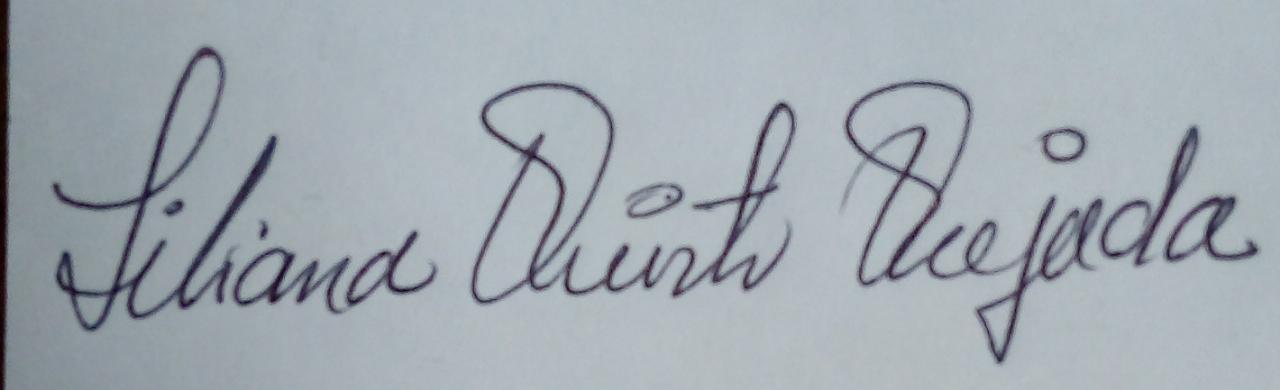 Liliana Quinto Quejada